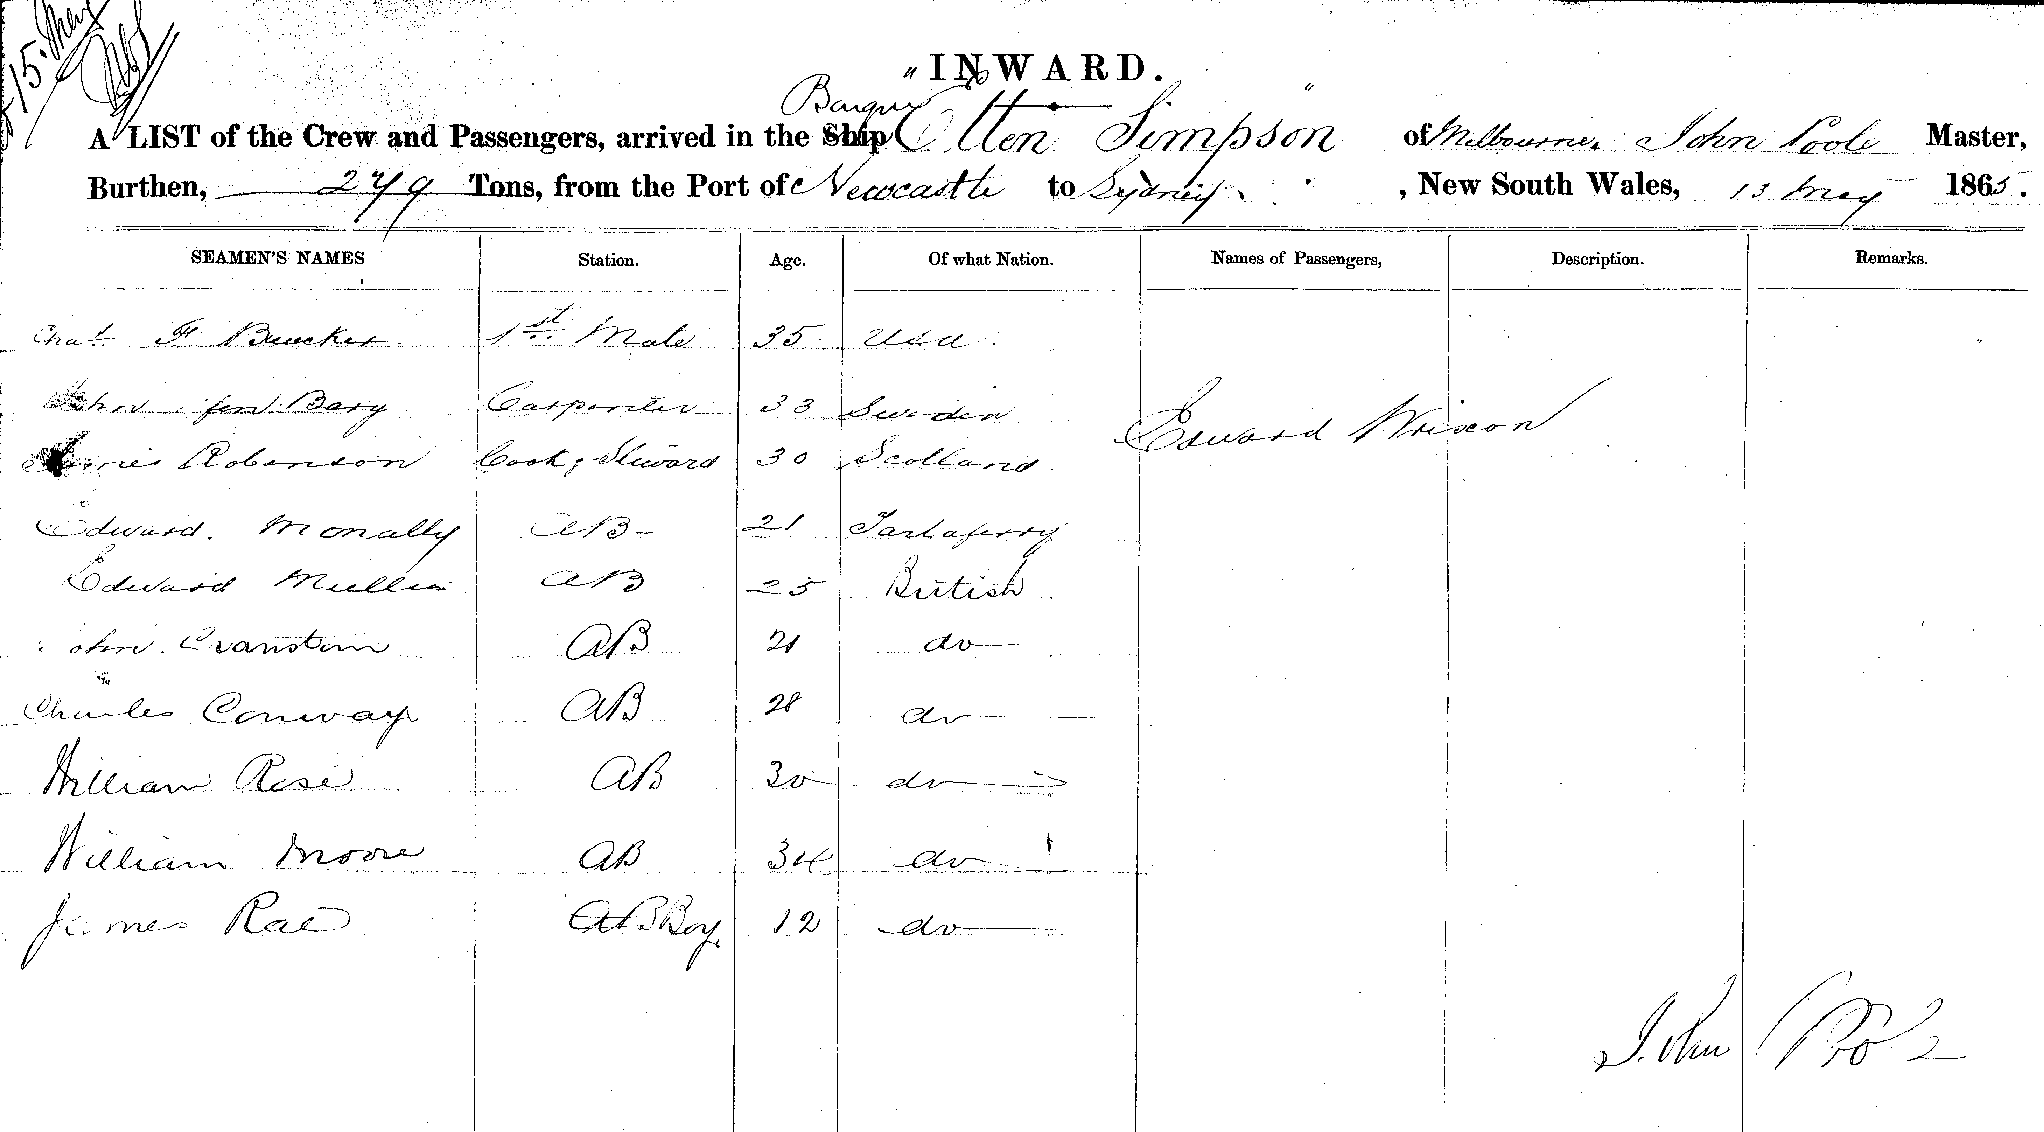 15 May
" INWARD. "
Barque
A LIST of the Crew and Passengers, arrived in the Ship Ellen Simpson of Melbourne, John Poole Master,
Burthen, 279 Tons, from the Port of Newcastle to Sydney , New South Wales, 13 May 1865.
SEAMEN'S NAMES Station. Age. Of what Nation. Names of Passengers, Description. Remarks.
Chas F 1st Mate 35 USA
John Carpenter 33 Sweden
Edward Wrixon
James Robinson Cook & Steward 30 Scotland
Edward. Mcnally AB 21
Edward Mullin AB 25 British
John AB 21 do
Charles Conway AB 28 do
William Rose AB 30 do
William Moore AB 34 do
James Rae AB Boy 12 do
John Poole